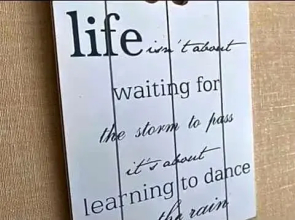 life isn't about
waiting for
the storm to pass
it's about
learning to dance
the rain